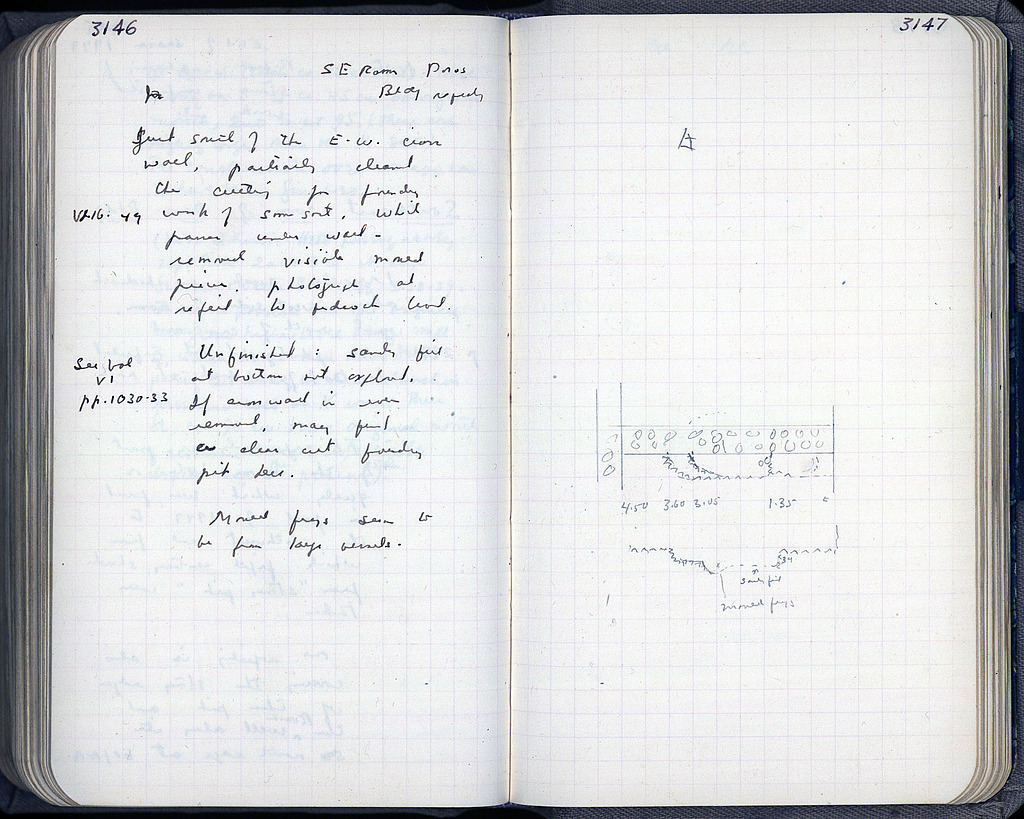 3146
SE Room Poros
Bldg
Just south of the E-W. cross
wall, partially cleaned
the cutting for foundry
VI.16.49 work of some sort, which
passes under wall -
removed visible mould
pieces, photograph at
refill to level.
Unfinished : sandy fill
at bottom not explored.
See vol
VI
pp. 1030-33
If crosswall is ever
removed, may find
a clear cut foundry
pit here.
Mould frags seem to
be from large vessels.
3147
4.50 3.60 3.05 1.35
sandy fill
mould frags